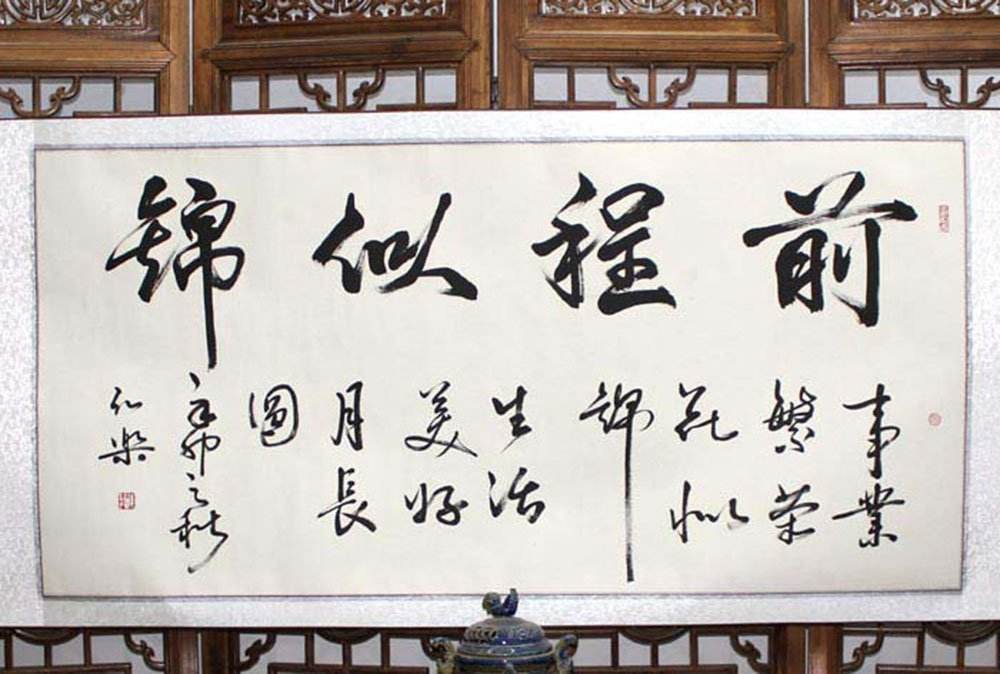 前程似錦
事業
繁荣
花似
錦
生活
美好
月長
圓
辛卯之秋
仁樂